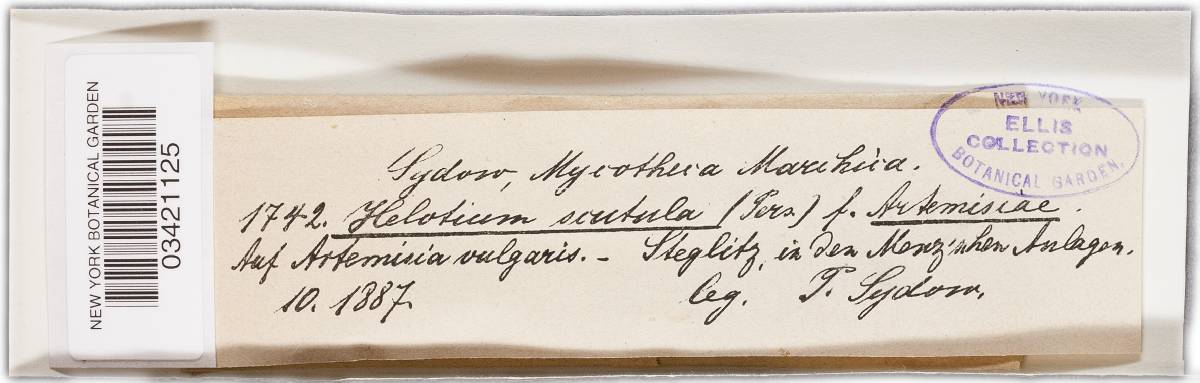 NEW YORK BOTANICAL GARDEN
03421125
NEW YORK
ELLIS
COLLECTION
BOTANICAL GARDEN.
Sydow, Mycotheca Marchica.
1742. Helotium scutula (Pers.) f. Artemisiae.
Auf Artemisia vulgaris. – Steglitz, in den Menz'schen Anlagen.
10. 1887.
leg. P. Sydow.